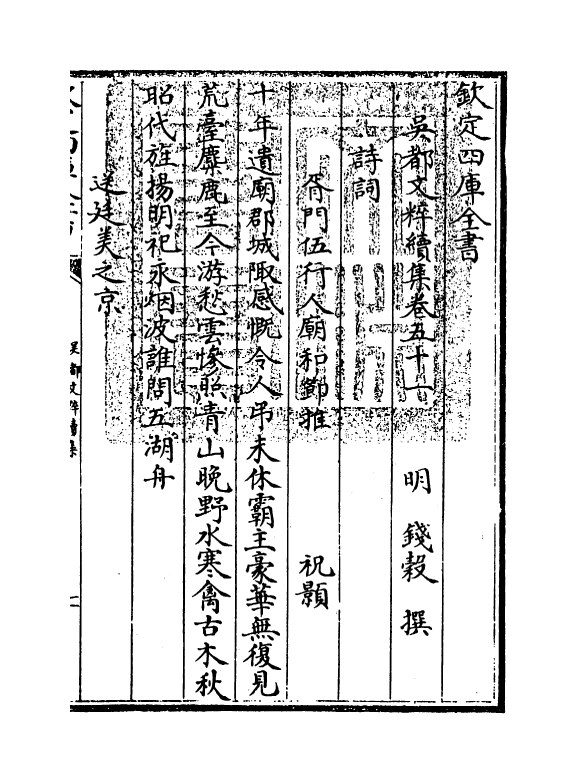 欽定四庫全書
吳都文粹續集卷五十二　明　錢穀　撰
詩詞
胥門伍行人廟和節推　祝顥
千年遺廟郡城陬感慨令人弔未休霸主豪華無復見
荒臺麋鹿至今游愁雲慘照青山晚野水寒禽古木秋
昭代旌揚明祀永烟波誰問五湖舟
送廷美之京
吳都文粹續集
一